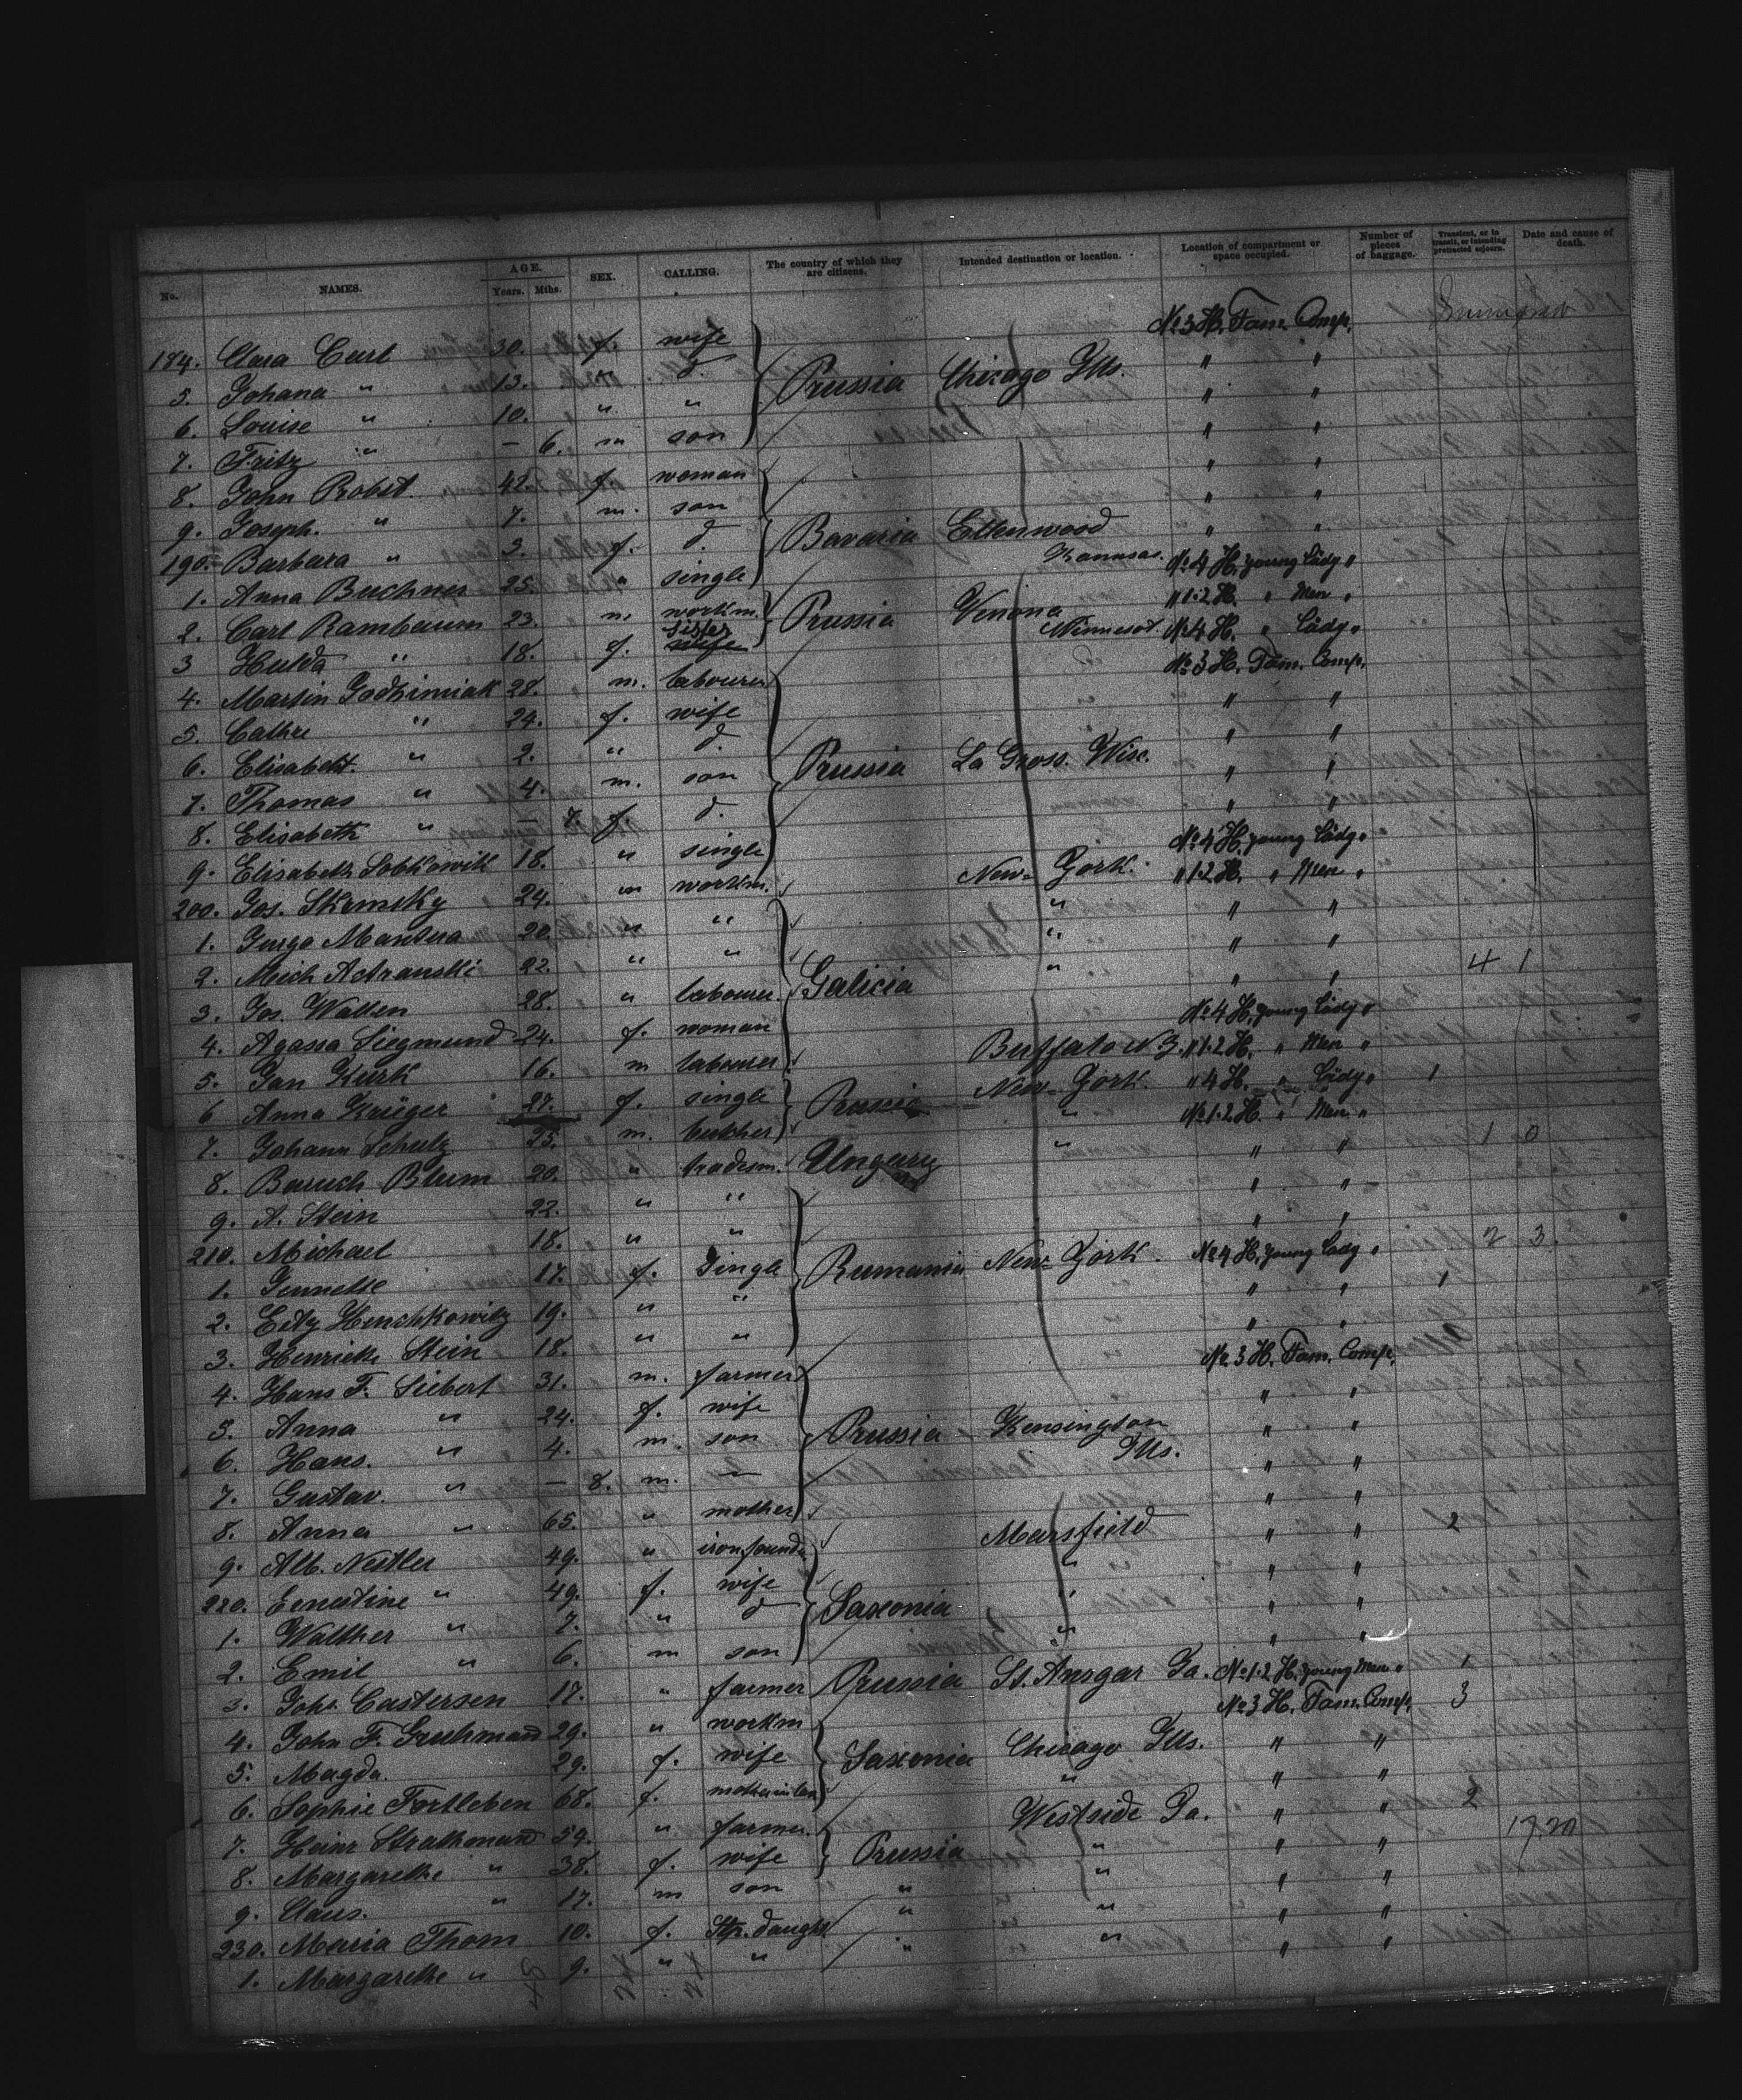 No. NAMES. AGE. Years. Mths. SEX. CALLING. The country of which they are citizens. Intended destination or location. Location of compartment or space occupied. Number of pieces of baggage. Transient, or in transit, or intending protracted sojourn. Date and cause of death.
184. Clara Carl 30. f. wife No 3 H. Fam. Comp.
5. Johana " 13. " d. Prussia Chicago Ills. " "
6. Louise " 10. " " " "
7. Fritz " – 6. m son " "
8. John Probst 42. f. woman " "
9. Joseph. " 7. m. son " "
190. Barbara " 3. f. d. Bavaria Ellenwood Kannsas. " "
1. Anna Buchner 25. " single No 4 H. young Lädy "
2. Carl Rambaum 23. m. workm. Prussia Venona Minnesot. " 1.2 H. " Men "
3 Hulda " 18. f. sister wife No 4 H. " Lädy "
4. Martin Godziniak 28. m. labourer No 3 H. Fam. Comp.
5. Cathr " 24. f. wife " "
6. Elisabeth. " 2. " d. " "
7. Thomas " 4. m. son Prussia La Gross. Wisc. " "
8. Elisabeth " – 7. f. d. " "
9. Elisabeth Sobkowik 18. " single No 4 H. young Lädy "
200. Jos. Skemsky 24. m workm. New-York. " 1.2 H. " Men "
1. Jurgo Mantura 20. " " " " "
2. Mich 22. " " " " " 4 1
3. Jos. Walten 28. " labourer. Galicia " " "
4. Agassa Siegmund 24. f. woman No 4 H. young Lädy "
5. Jan Kurk 16. m labourer Buffalo N.Y. " 1.2 H. " Men "
6 Anna Krüger 27. f. single Russia New-York. " 4 H. " Lädy " 1
7. Johann Schulz 25. m. butcher " No 1.2 H. " Men "
8. Baruch Blum 20. " tradesm. Ungary " " " 1 0
9. A. Stein 22. " " " "
210. Michael 18. " " " "
1. Jennette 17. f. Single Rumania New-York. No 4 H. young Lady " 2 3.
2. Eity Henschkowitz 19. " " " " 1
3. Henriette Stein 18. " " " "
4. Hans F. Siebert 31. m. farmer No 3 H. Fam. Comp.
5. Anna " 24. f. wife " "
6. Hans. " 4. m. son Prussia Kensington Ills. " "
7. Gustav. " – 8. m. " "
8. Anna " 65. " mother " "
9. Alb. Nestler 49. " iron founder Marsfield " " 2
220. Ernestine " 49. f. wife " " "
1. Walther " 7. " d Saxonia " " "
2. Emil " 6. m son " " "
3. Joh. Castersen 17. " farmer Prussia St. Ansgar Ja. No 1.2 H. young Men " 1
4. John F. Gruhmand 29. " workm No 3 H. Fam. Comp. 3
5. Magda. 29. f. wife Saxonia Chicago Ills. " "
6. Sophie Fortleben 68. f. mother in law " " "
7. Heinr Strathmand 59. " farmer. Westside Ja. " " 2
8. Margarethe " 38. f. wife Prussia " " "
9. Claus. " 17. m son " " " "
230. Maria Thom 10. f. Stp. daught " " " "
1. Margarethe " 9. " " " " " "